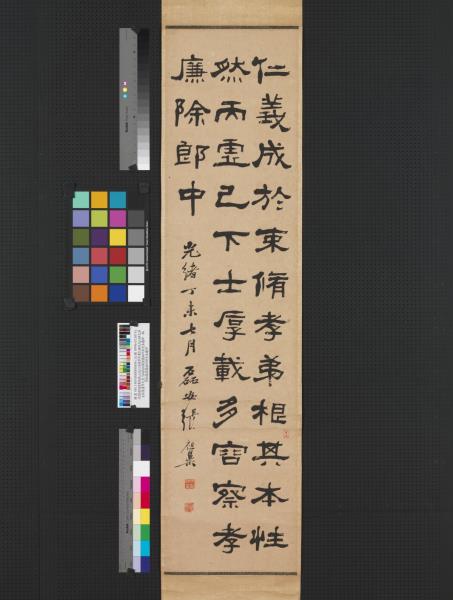 仁義成於束脩孝弟根其本性
然而虛己下士厚載多容察孝
廉除郎中
光緒丁未七月磊盦張祖翼